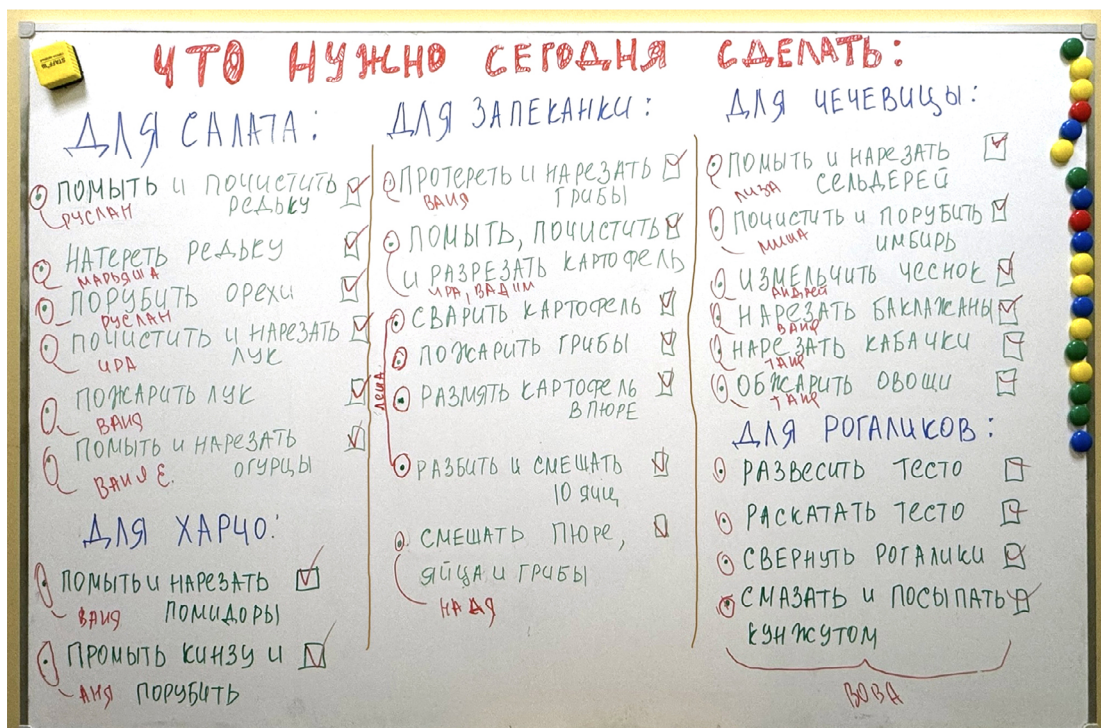 ЧТО НУЖНО СЕГОДНЯ СДЕЛАТЬ:
ДЛЯ САЛАТА:
ПОМЫТЬ И ПОЧИСТИТЬ
РЕДЬКУ
РУСЛАН
НАТЕРЕТЬ РЕДЬКУ
МАРЬЯША
ПОРУБИТЬ ОРЕХИ
РУСЛАН
ПОЧИСТИТЬ И НАРЕЗАТЬ
ЛУК
ИРА
ПОЖАРИТЬ ЛУК
ВАНЯ
ПОМЫТЬ И НАРЕЗАТЬ
ОГУРЦЫ
ВАНЯ Е.
ДЛЯ ХАРЧО:
ПОМЫТЬ И НАРЕЗАТЬ
ПОМИДОРЫ
ВАНЯ
ПРОМЫТЬ КИНЗУ И
ПОРУБИТЬ
АНЯ
ДЛЯ ЗАПЕКАНКИ:
ПРОТЕРЕТЬ И НАРЕЗАТЬ
ГРИБЫ
ВАНЯ
ПОМЫТЬ, ПОЧИСТИТЬ
И РАЗРЕЗАТЬ КАРТОФЕЛЬ
ИРА, ВАДИМ
СВАРИТЬ КАРТОФЕЛЬ
ПОЖАРИТЬ ГРИБЫ
РАЗМЯТЬ КАРТОФЕЛЬ
В ПЮРЕ
РАЗБИТЬ И СМЕШАТЬ
10 ЯИЦ
ЛЕША
СМЕШАТЬ ПЮРЕ,
ЯЙЦА И ГРИБЫ
НАДЯ
ДЛЯ ЧЕЧЕВИЦЫ:
ПОМЫТЬ И НАРЕЗАТЬ
СЕЛЬДЕРЕЙ
ЛИЗА
ПОЧИСТИТЬ И ПОРУБИТЬ
ИМБИРЬ
МИША
ИЗМЕЛЬЧИТЬ ЧЕСНОК
АНДРЕЙ
НАРЕЗАТЬ БАКЛАЖАНЫ
ВАНЯ
НАРЕЗАТЬ КАБАЧКИ
ТАНЯ
ОБЖАРИТЬ ОВОЩИ
ТАНЯ
ДЛЯ РОГАЛИКОВ:
РАЗВЕСИТЬ ТЕСТО
РАСКАТАТЬ ТЕСТО
СВЕРНУТЬ РОГАЛИКИ
СМАЗАТЬ И ПОСЫПАТЬ
КУНЖУТОМ
ВОВА